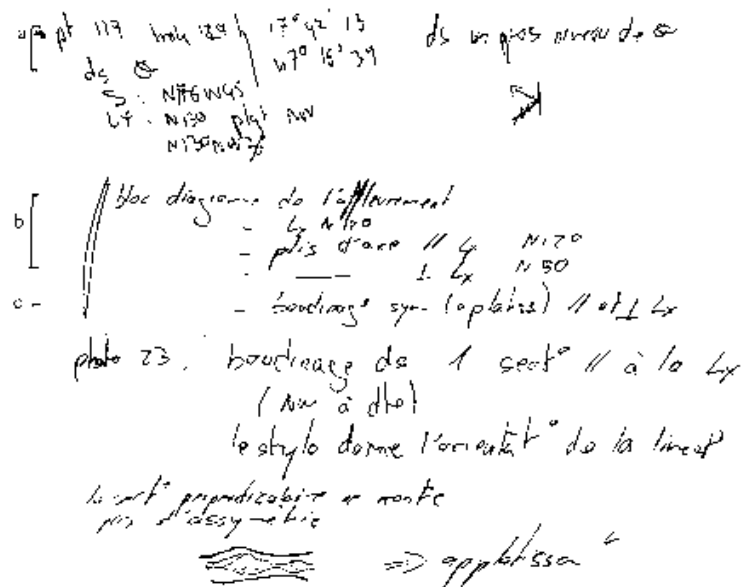 a
pt 117 17° 42' 13 ds un gros niveau de
ds 47° 15' 39
S : N76 W45
Lx : N130 plgt NW
b
bloc diagramme de l'affleurement
- Lx N120
- plis d'axe // Lx N120
- —— ⊥ Lx N50
c -
- boudinage sym (aplatiss) // et ⊥ Lx
photo 23. boudinage ds 1 sect° // à la Lx
(NW à dte)
le stylo donne l'orientat° de la lineat°
la sect° perpendiculaire ne montre
pas d'assymétrie
=> applatissa